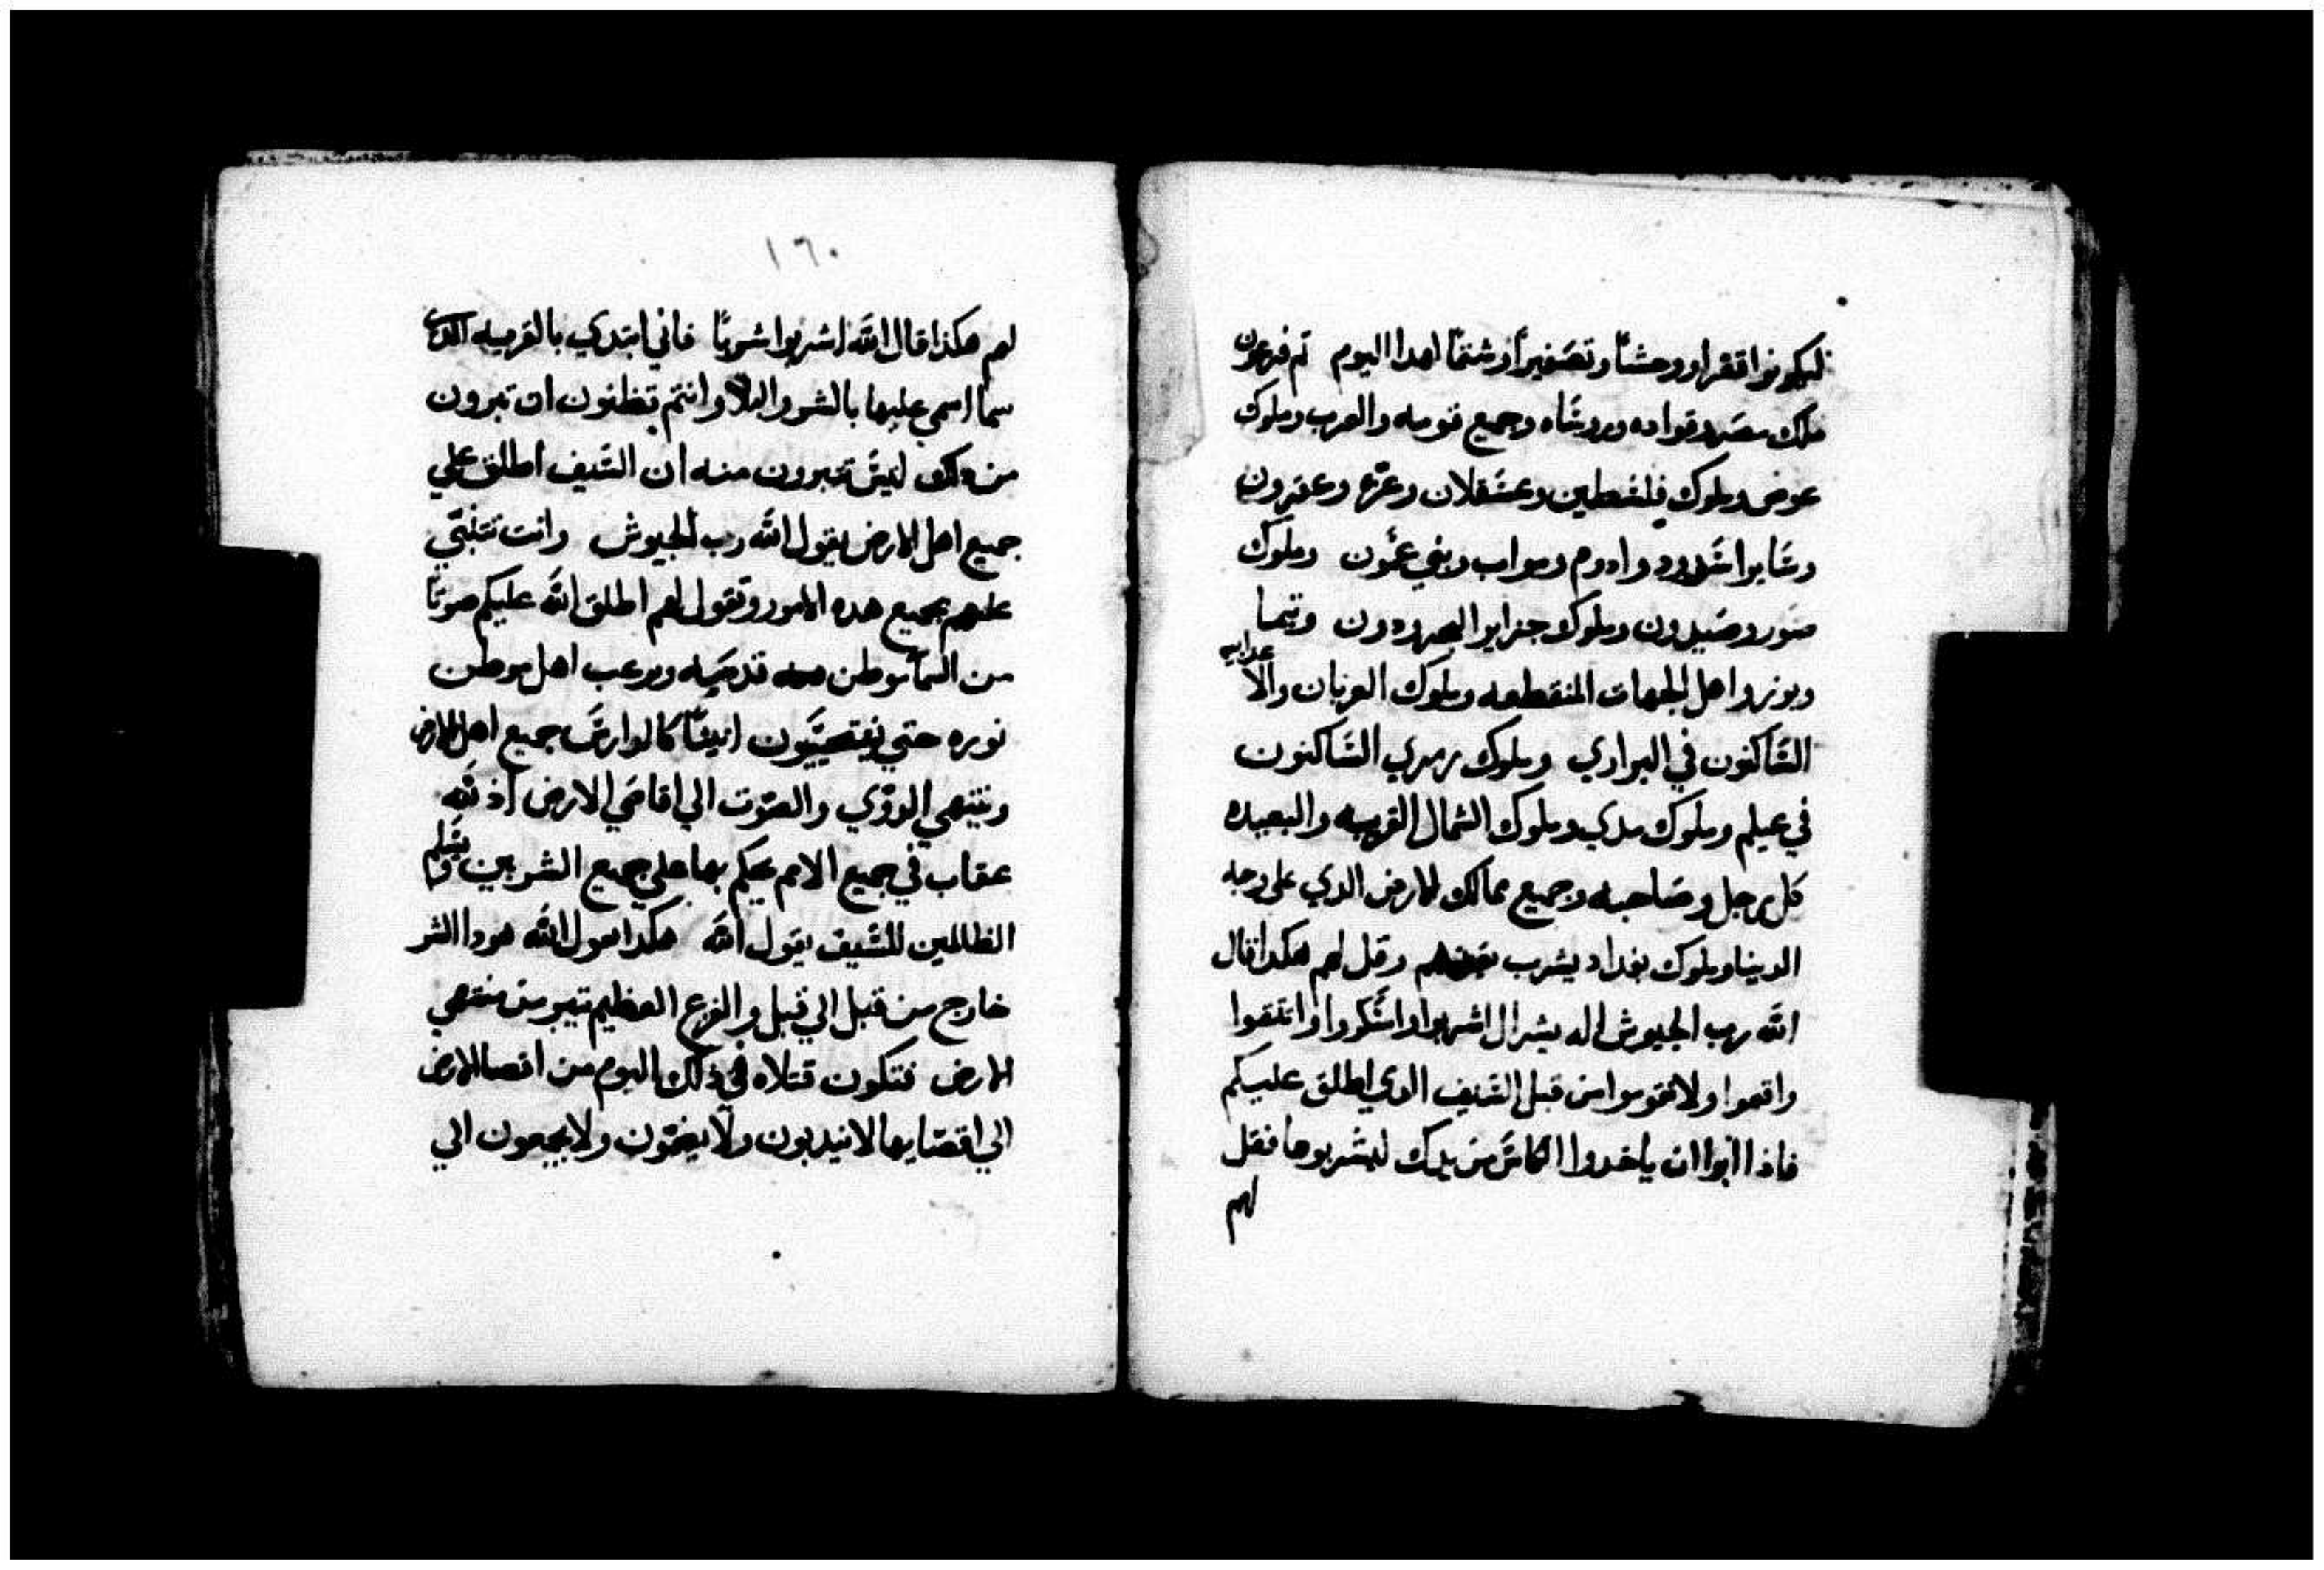 ليكونوا قفرا ووحشا وتصفيرا وشتما لهدا اليوم ثم فرعون
ملك مصر وقواده وروساه وجميع قومه والعرب وملوك
عوض وملوك فلسطين وعسقلان وغزه وعقرون
وساير اشدود وادوم ومواب وبني عمون وملوك
صور وصيدون وملوك جزاير البحر وددن وتيما
وبوز واهل الجهات المنقطعه وملوك العربان والاعرابيه
الساكنون في البراري وملوك زمري الساكنون
في عيلم وملوك مدي وملوك الشمال القريبه والبعيده
كل رجل وصاحبه وجميع ممالك الارض الدي على وجه
الدينا وملوك بغداد يشرب بعدهم وقل لهم هكدا قال
الله رب الجيوش اله يسرال اشربوا واسكروا واتقوا
واقعوا ولا تقوموا من قبل السيف الدي اطلق عليكم
فاذا ابوا ان ياخدوا الكاس من يدك ليشربوها فقل
لهم
١٦٠
لهم هكذا قال الله اشربوا شربا فاني ابتدي بالقريه الدي
سما اسمي عليها بالشر والبلا وانتم تظنون ان تبرون
من دلك ليس تبرون منه ان السيف اطلق علي
جميع اهل الارض يقول الله رب الجيوش وانت تتنبي
عليهم بجميع هده الامور وتقول لهم اطلق الله عليكم صوتا
من السما موطن قدسه ويرعب اهل موطن
نوره حتي ايضا جميع اهل الارض
وينتهي الدوي والصوت الي اقاصي الارض اذ لله
عقاب في جميع الامم يحكم بها علي جميع البشريين ويسلم
الظالمين للسيف يقول الله هكدا يقول الله هودا الشر
خارج من قبل الي قبل والفزع العظيم يتير من منتهي
الارض فتكون قتلاه في ذلك اليوم من اقصا الارض
الي اقصايها لا يندبون ولا يضمون ولا يجمعون الي